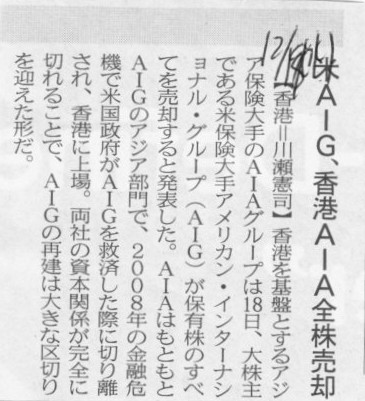 米AIG、香港AIA全株売却
【香港＝川瀬憲司】香港を基盤とするアジ
ア保険大手のAIAグループは18日、大株主
である米保険大手アメリカン・インターナシ
ョナル・グループ（AIG）が保有株のすべ
てを売却すると発表した。AIAはもともと
AIGのアジア部門で、2008年の金融危
機で米国政府がAIGを救済した際に切り離
され、香港に上場。両社の資本関係が完全に
切れることで、AIGの再建は大きな区切り
を迎えた形だ。